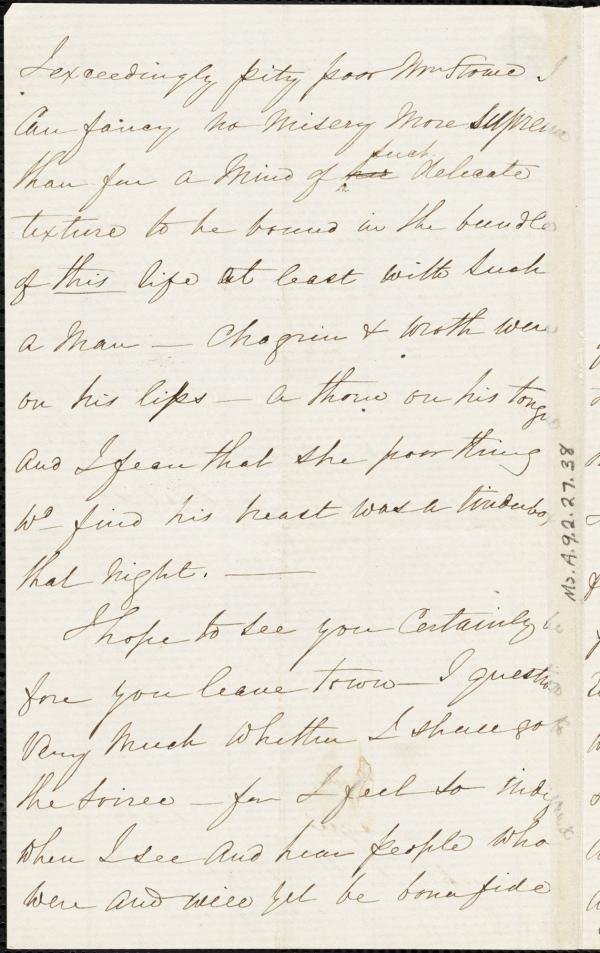 I exceedingly pity poor Mrs Stowe I
Can fancy no misery more supreme
than for a Mind of her such delicate
texture to be bound in the bundle
of this life at least with such
a Man — Chagrin & wroth were
on his lips — a thorn on his tongue
and I fear that she poor thing
wd find his heart was a tinderbox
that night. —
I hope to see you Certainly be
fore you leave town — I question
very much whether I shall go to
the soiree — for I feel so indignant
when I see and hear people who
were and will yet be bonafide
Ms.A.9.2.27.38